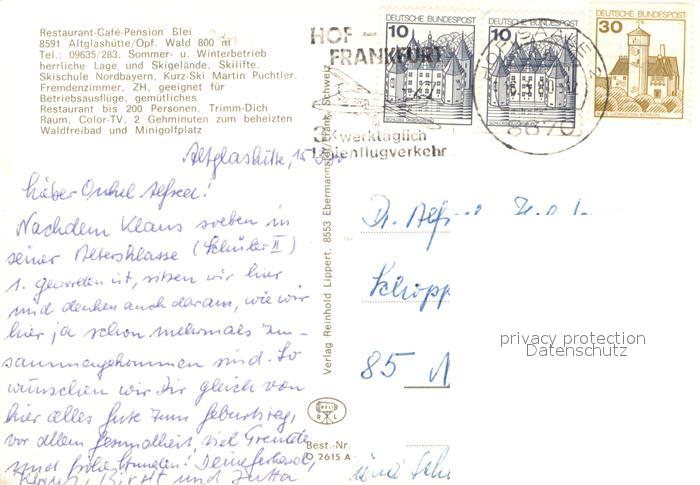 Restaurant-Café-Pension Blei
8591 Altglashütte/Opf. Wald 800 m
Tel.: 09635/283. Sommer- u. Winterbetrieb
herrliche Lage und Skigelände, Skilifte.
Skischule Nordbayern, Kurz-Ski Martin Püchtler.
Fremdenzimmer, ZH, geeignet für
Betriebsausflüge, gemütliches
Restaurant bis 200 Personen. Trimm-Dich
Raum, Color-TV, 2 Gehminuten zum beheizten
Waldfreibad und Minigolfplatz
HOF –
FRANKFURT
3x werktäglich
Linienflugverkehr
DEUTSCHE BUNDESPOST
10
DEUTSCHE BUNDESPOST
10
DEUTSCHE BUNDESPOST
30
8670
Altglashütte, 15
Lieber Onkel Alfred!
Nachdem Klaus soeben in
seiner Altersklasse (Schüler II)
1. geworden ist, sitzen wir hier
und denken auch daran, wie wir
hier ja schon mehrmals zu-
sammengekommen sind. So
wünschen wir Dir gleich von
hier alles Gute zum Geburtstag,
vor allem Gesundheit viel Freude
und frohe Stunden! Deine Gerhard,
Klaus, Birgit und Jutta
Verlag Reinhold Lippert, 8553 Ebermannstadt/Fränk. Schweiz
Dr. Alfred
Schopp
85 N
privacy protection
Datenschutz
R L
Best.-Nr.
O 2615 A
und